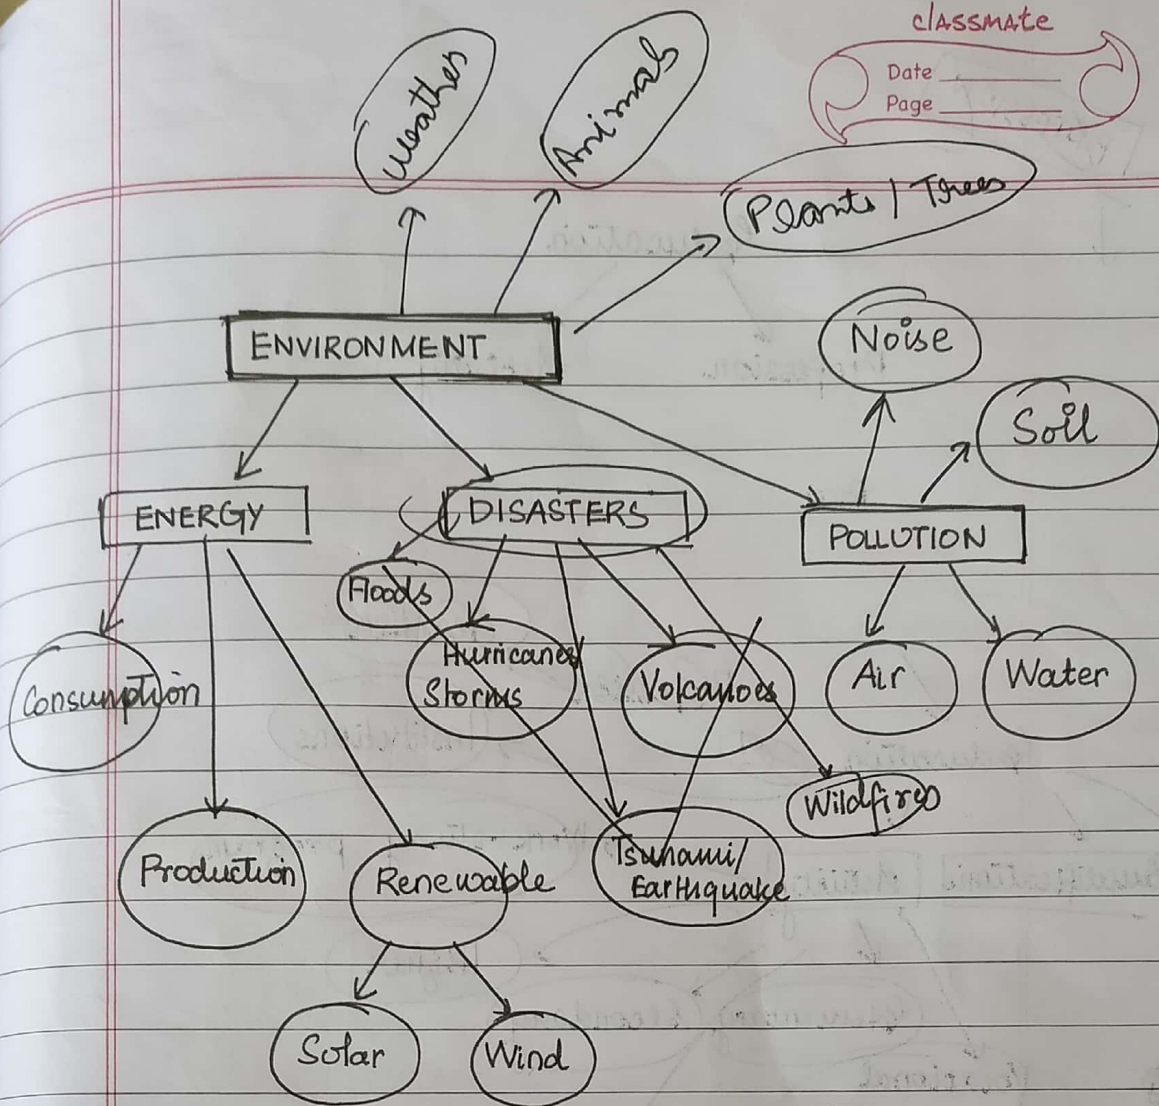 classmate
Date
Page
Weather
Animals
Plants / Trees
ENVIRONMENT
Noise
Soil
ENERGY
DISASTERS
POLLUTION
Floods
Hurricanes/
Storms
Volcanoes
Air
Water
Consumption
Wildfires
Production
Renewable
Tsunami/
Earthquake
Solar
Wind